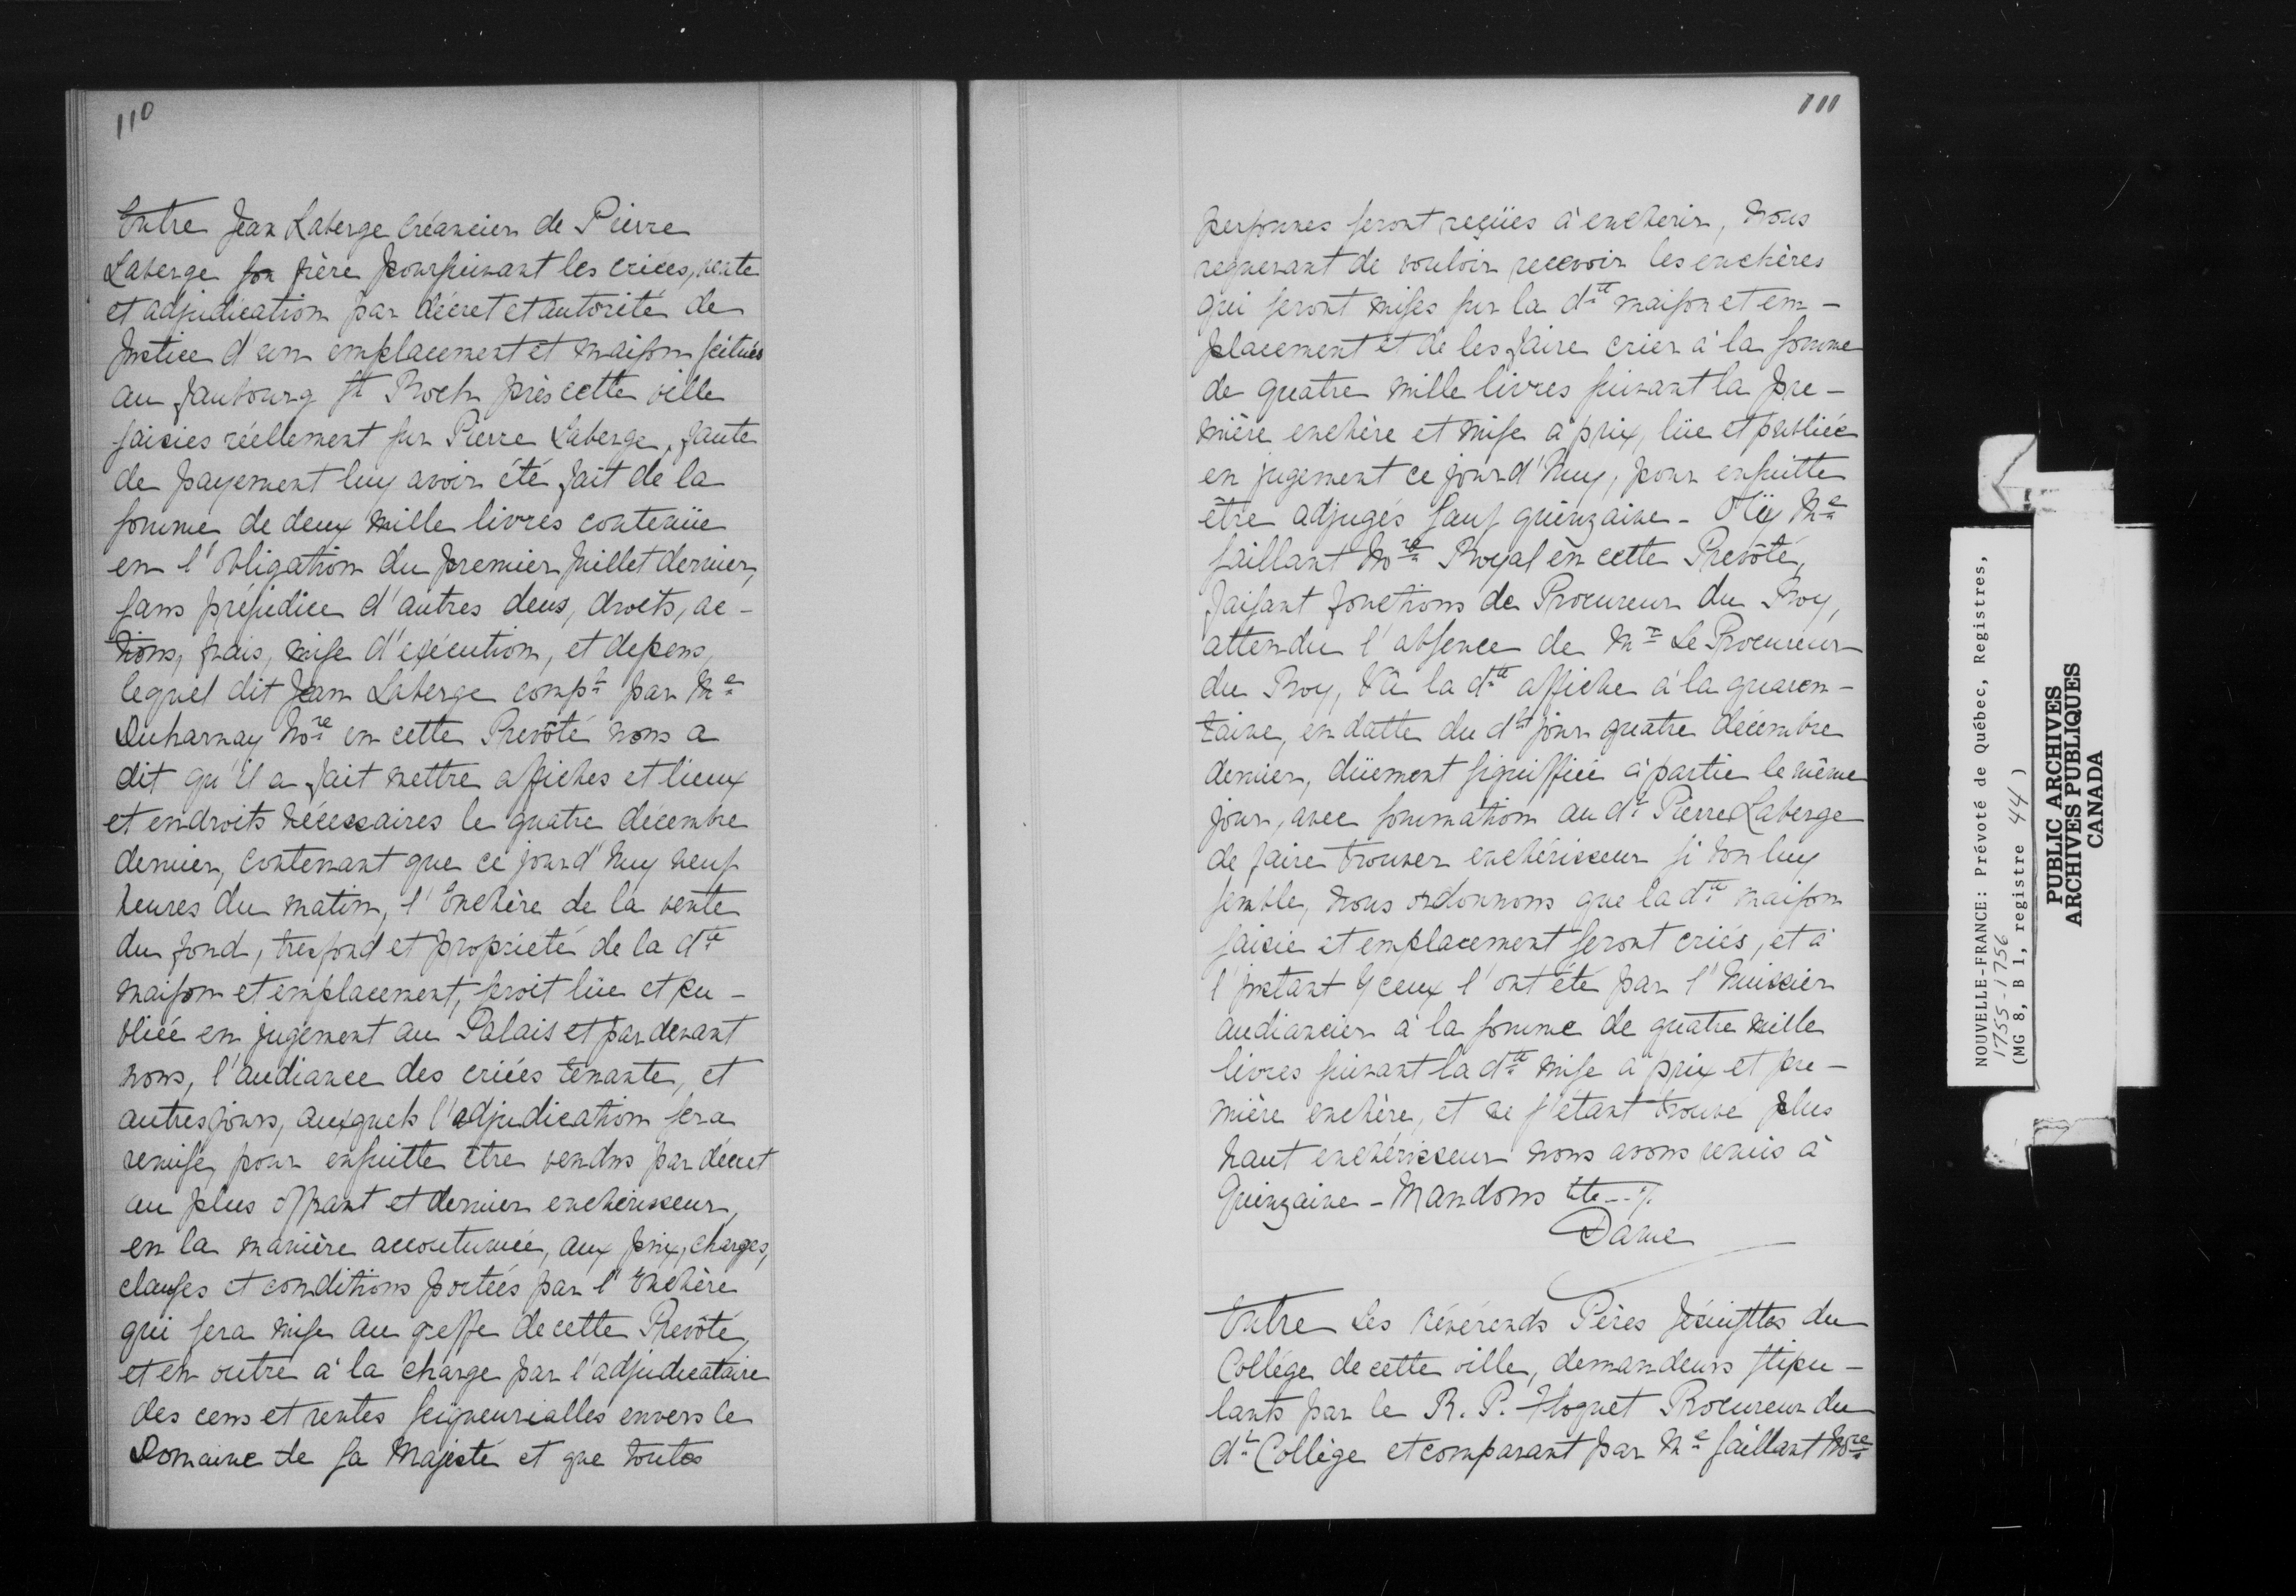 110
Entre Jean Laberge créancier de Pierre
Laberge son frère poursuivant les criées, vente
et adjudication par décret et autorité de
Justice d'un emplacement et maison scitués
au faubourg St Roch près cette ville
saisies réellement sur Pierre Laberge, faute
de payement luy avoir été fait de la
somme de deux mille livres contenüe
en l'obligation du premier Juillet dernier,
sans préjudice d'autres deus, droits, ac-
tions, frais, mise d'exécution, et depens,
lequel dit Jean Laberge compt par Me
Duharnay Nore en cette Prevôté nous a
dit qu'il a fait mettre affiches et lieux
et endroits nécessaires le quatre décembre
dernier, contenant que ce jourd'huy neuf
heures du matin, l'Enchère de la vente
du fond, tresfond et propriété de la dte
maison et emplacement, seroit lüe et pu-
bliée en jugement au Palais et par devant
nous, l'audiance des criées tenante, et
autres jours, auxquels l'adjudication sera
remise, pour ensuitte être vendus par décret
au plus offrant et dernier enchérisseur,
en la manière accoutumée, aux prix, charges,
clauses et conditions portées par l'Enchère
qui sera mise au greffe de cette Prevôté,
et en outre à la charge par l'adjudicataire
des cens et rentes seigneurialles envers le
Domaine de sa Majesté et que toutes
111
personnes seront reçües à encherir, nous
requerant de vouloir recevoir les enchères
qui seront mises sur la dte maison et em-
placement et de les faire crier à la somme
de quatre mille livres suivant la pre-
mière enchère et mise à prix, lüe et publiée
en jugement ce jourd'huy, pour ensuitte
être adjugés sauf quinzaine - Oüy Me
Saillant Nore Royal en cette Prevôté,
faisant fonctions de Procureur du Roy,
attendu l'absence de Mr Le Procureur
du Roy, Vû la dte affiche à la quaran-
taine, en datte du dt jour quatre décembre
dernier, düement signiffiée à partie le même
jour, avec sommation au dt Pierre Laberge
de faire trouver enchérisseur si bon luy
semble, nous ordonnons que la dte maison
saisie et emplacement seront criés, et à
l'instant yceux l'ont été par l'huissier
audiancier à la somme de quatre mille
livres suivant la dte mise à prix et pre-
mière enchère, et ne s'étant trouvé plus
haut enchérisseur nous avons remis à
Quinzaine - Mandons etc -- ·/·
Daine
Entre Les révérends Pères Jésuisttes du
Collége de cette ville, demandeurs stipu-
lants par le R. P. Floquet Procureur du
dt Collège et comparant par Me Saillant Nore
NOUVELLE-FRANCE: Prévoté de Québec, Registres,
1755-1756
(MG 8, B 1, registre 44)
PUBLIC ARCHIVES
ARCHIVES PUBLIQUES
CANADA